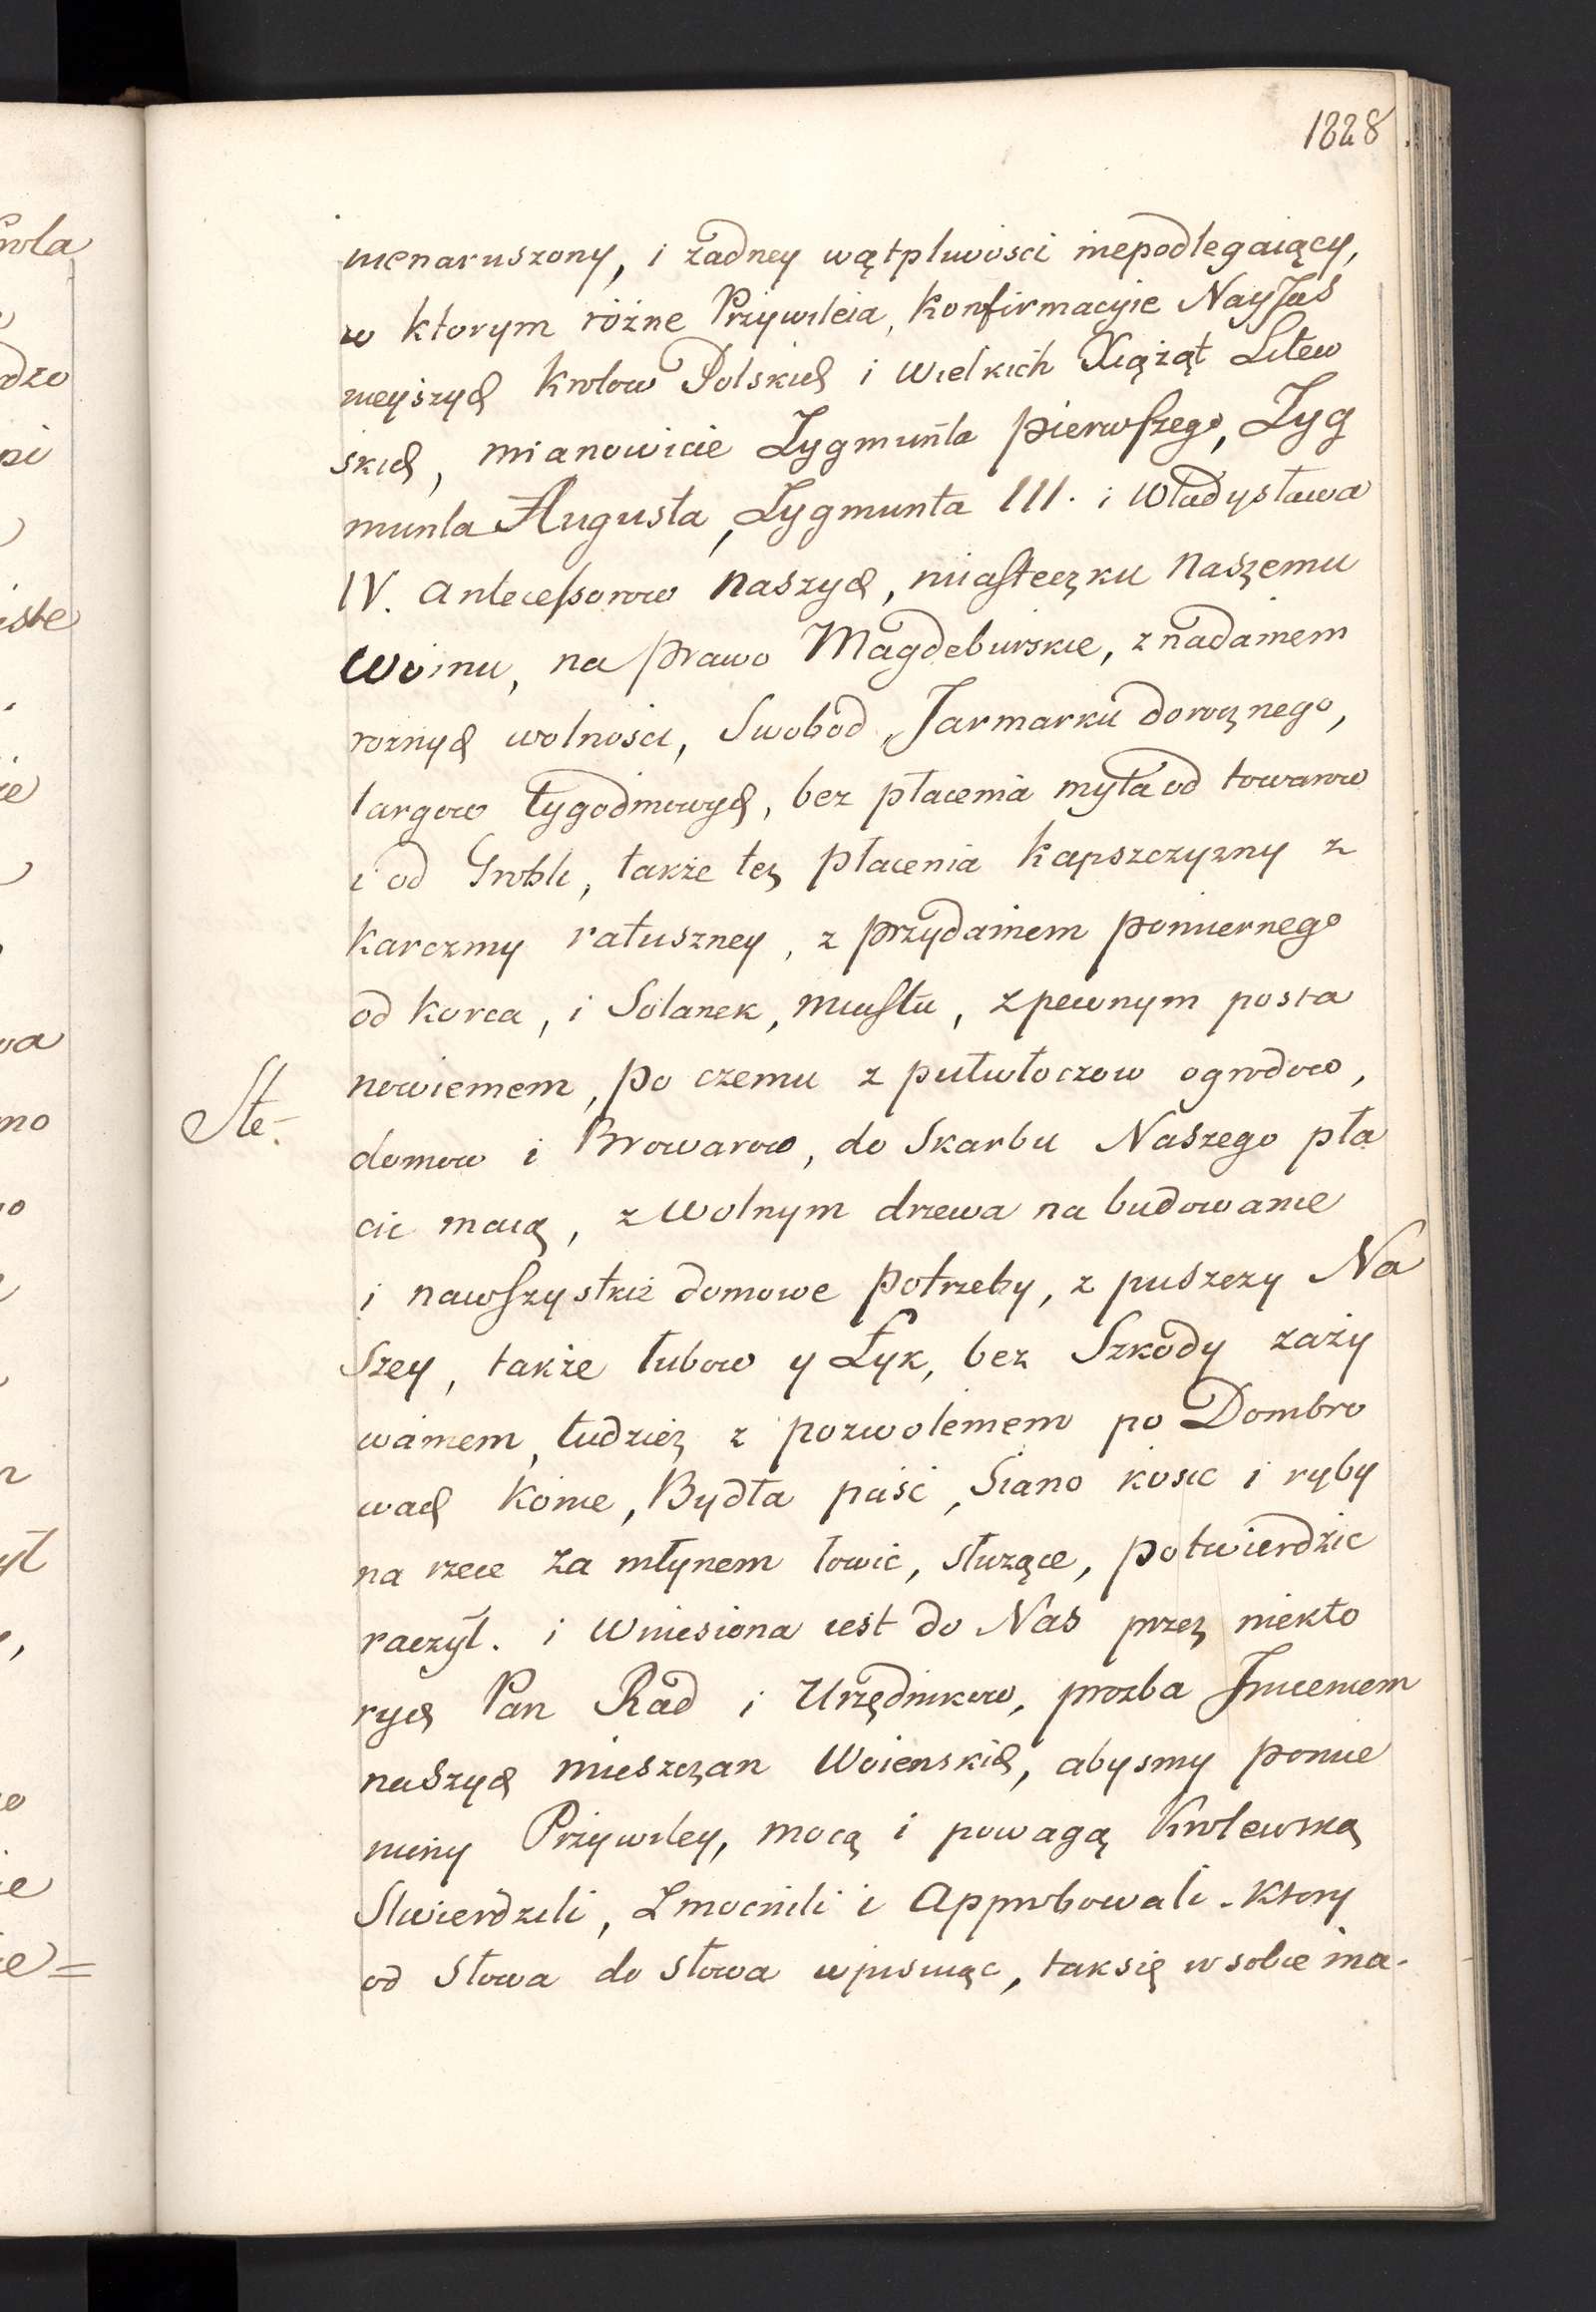 1828
nienaruszony, i żadney wątpliwości niepodlegaiący,
w ktorym różne Przywileia, Konfirmacyie NayJaś
nieyszych Krolow Polskich i Wielkich Xiążąt Litew
skich, mianowicie Zygmunta pierwszego, Zyg
munta Augusta, Zygmunta III. i Władysława
IV. Antecessorow Naszych, miasteczku Naszemu
Woinu, na prawo Magdeburskie, z nadaniem
rożnych wolności, Swobod, Jarmarku dorocznego,
targow tygodniowych, bez płacenia myta od towarow
i od Grobli, także też płacenia Kapszczyzny z
Karczmy ratuszney, z przydaniem pomiernego
od Korca, i Solanek, miastu, z pewnym posta
nowieniem, po czemu z pułwłoczow ogrodow,
domow i Browarow, do Skarbu Naszego pła
cić maią, z wolnym drzewa na budowanie
i nawszystkie domowe potrzeby, z puszczy Na
Szey, także łubow y Łyk, bez Szkody zaży
waniem, tudzież z pozwoleniem po Dombro
wach Konie, Bydła paść, Siano kosić i ryby
na rzece za młynem łowić, słuzące, potwierdzić
raczył. i Wniesiona iest do Nas przez niekto
rych Pan Rad i Urzędnikow, prozba Imieniem
naszych mieszczan Woienskich, abysmy pomie
niony Przywiley, mocą i powagą Krolewską
Stwierdzili, Zmocnili i Approbowali. Ktory
od Słowa do słowa wpisuiąc, tak się w sobie ma.
Ste-